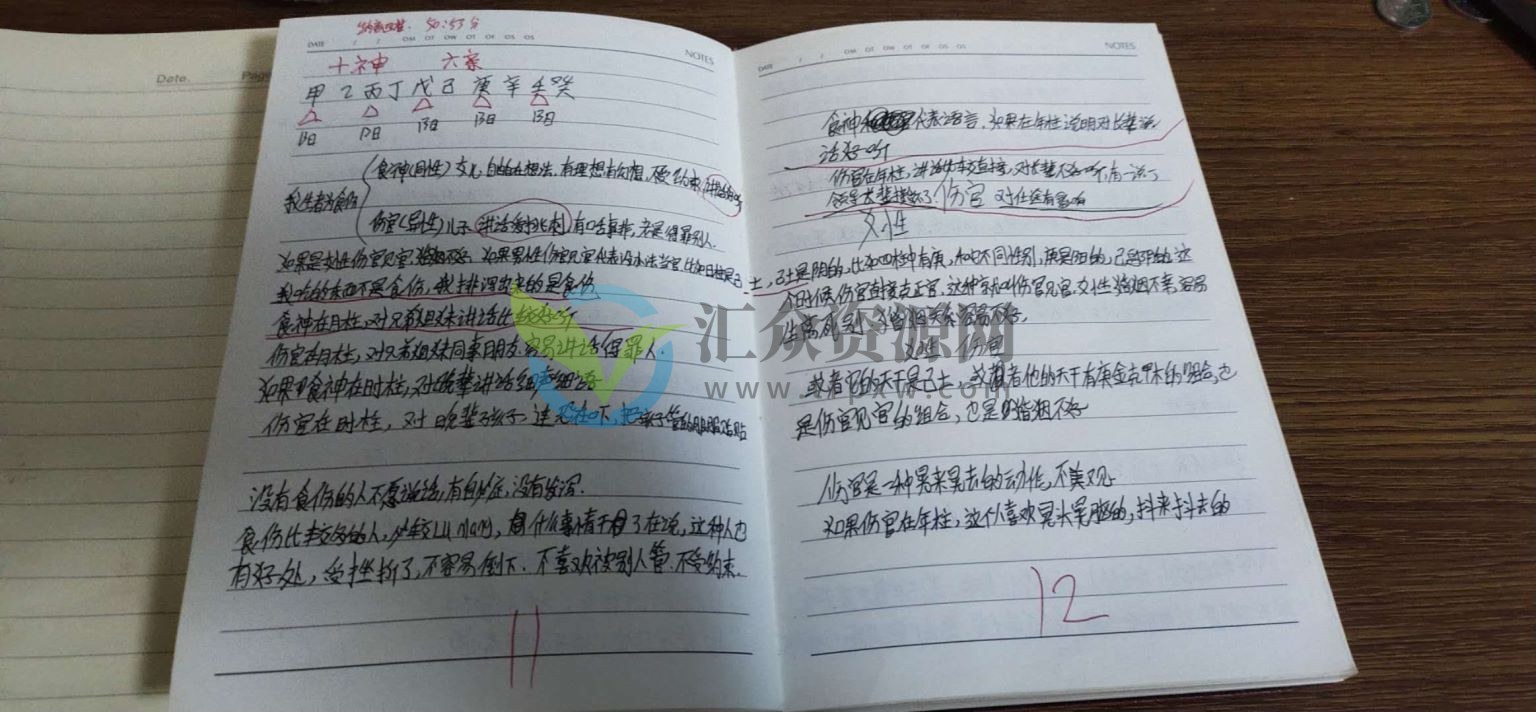 Date.
Page
50:53分
DATE / / OM OT OW OT OF OS OS NOTES
十神 六亲
甲乙丙丁戊己庚辛壬癸
△ △ △ △ △
阳 阳 阳 阳 阳
我生者为食伤
食神(同性)文儿,自由自在想法,有理想有幻想,不受约束,讲话好听
伤官(异性)儿子,讲话爱挑刺,有口舌事非,老是得罪别人.
如果是女性伤官见官婚姻不好 如果男性伤官见官代表没办法当官,比如日柱是己
我吃的东西不是食伤,我排泄出来的是食伤
食神在月柱,对兄弟姐妹讲话比较好听
伤官在月柱,对兄弟姐妹同事朋友容易讲话得罪人.
如果食神在时柱,对晚辈讲话细声细语
伤官在时柱,对晚辈孩子,连恐带吓,把孩子管的服服帖帖
没有食伤的人不愿说话,有自妙症,没有发泄.
食伤比较多的人,比较Lu mang,什么事情干了在说,这种人也
有好处,受挫折了,不容易倒下.不喜欢被别人管.不受约束.
11
DATE / / OM OT OW OT OF OS OS NOTES
食神代表语言.如果在年柱说明对长辈说
话好听
伤官在年柱,讲话比较直接,对长辈不好听,有一说一
领导长辈 伤官 对仕途有影响
女性
土,己土是阴的,比如四柱中有庚,和它不同性别,庚是阳的,己是阴的,这
个时候伤官直接克正官.这种字就叫伤官见官.女性婚姻不幸,容易
生离死别,婚姻关系容易不好.
女性 伤官
或者它的天干是己土 或者他的天干有庚金克甲木的组合,也
是伤官见官的组合,也是婚姻不好
伤官是一种晃来晃去的动作,不美观.
如果伤官在年柱,这个人喜欢晃头晃脑的,抖来抖去的
12
汇众资源网
www.zcpxw.com